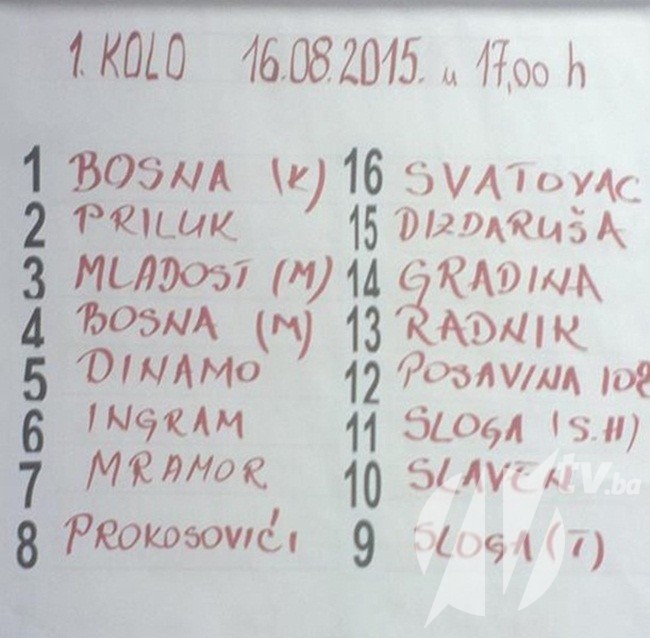 1. KOLO 16.08.2015. u 17,00 h
1 BOSNA (K) 16 SVATOVAC
2 PRILUK 15 DIZDARUŠA
3 MLADOST (M) 14 GRADINA
4 BOSNA (M) 13 RADNIK
5 DINAMO 12 POSAVINA 108
6 INGRAM 11 SLOGA (S.H)
7 MRAMOR 10 SLAVEN
8 PROKOSOVIĆI 9 SLOGA (T)
tv.ba